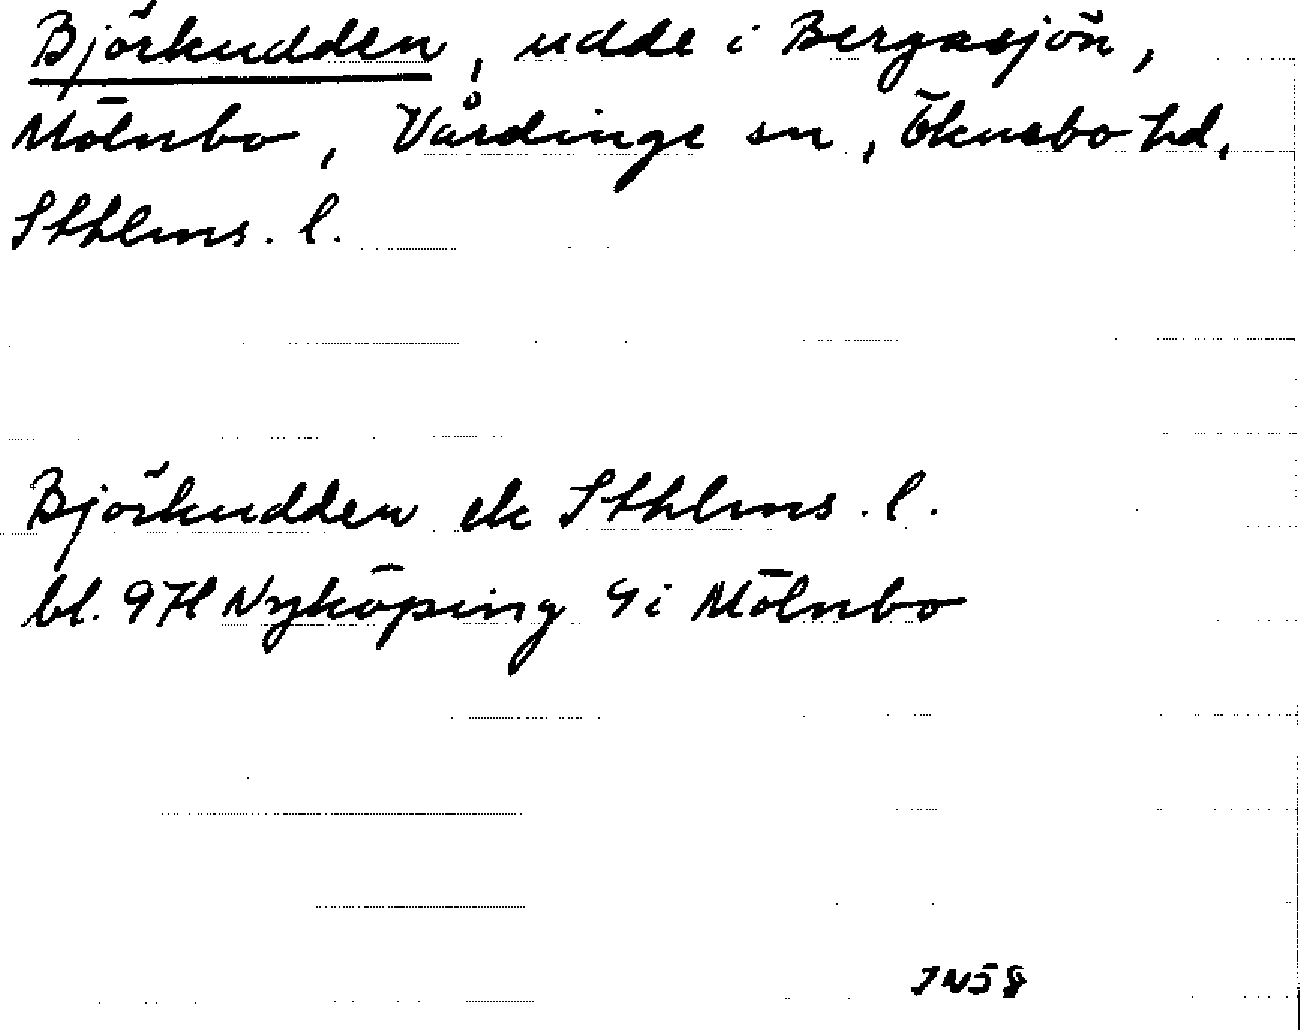 Björkudden, udde i Bergasjön,
Mölnbo, Vårdinge sn, Öknebo hd,
Sthlms. l.
Björkudden ek Sthlms. l.
bl. 9H Nyköping 4i Mölnbo
JN58